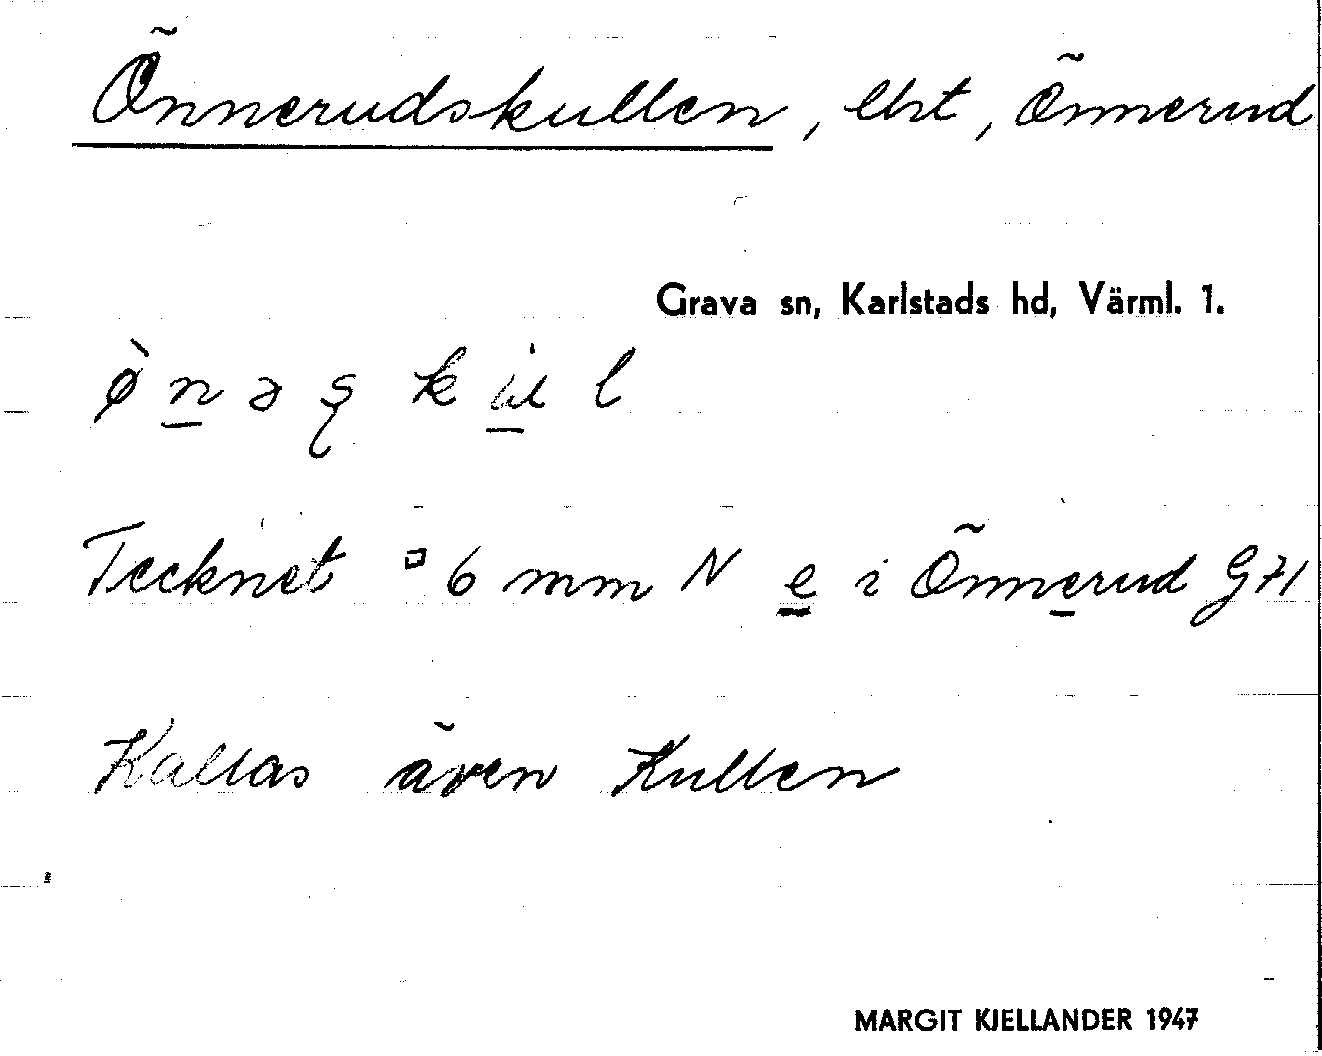 Önnerudskullen, lht, Önnerud
Grava sn, Karlstads hd, Värml. 1.
Tecknet ▫ 6 mm N e i Önnerud G71
Kallas även Kullen
MARGIT KJELLANDER 1947